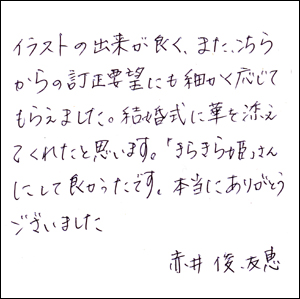 イラストの出来が良く、また、こちら
からの訂正要望にも細かく応じて
もらえました。結婚式に華を添え
てくれたと思います。「きらきら姫」さん
にして良かったです。本当にありがとう
ございました
赤井 俊、友恵